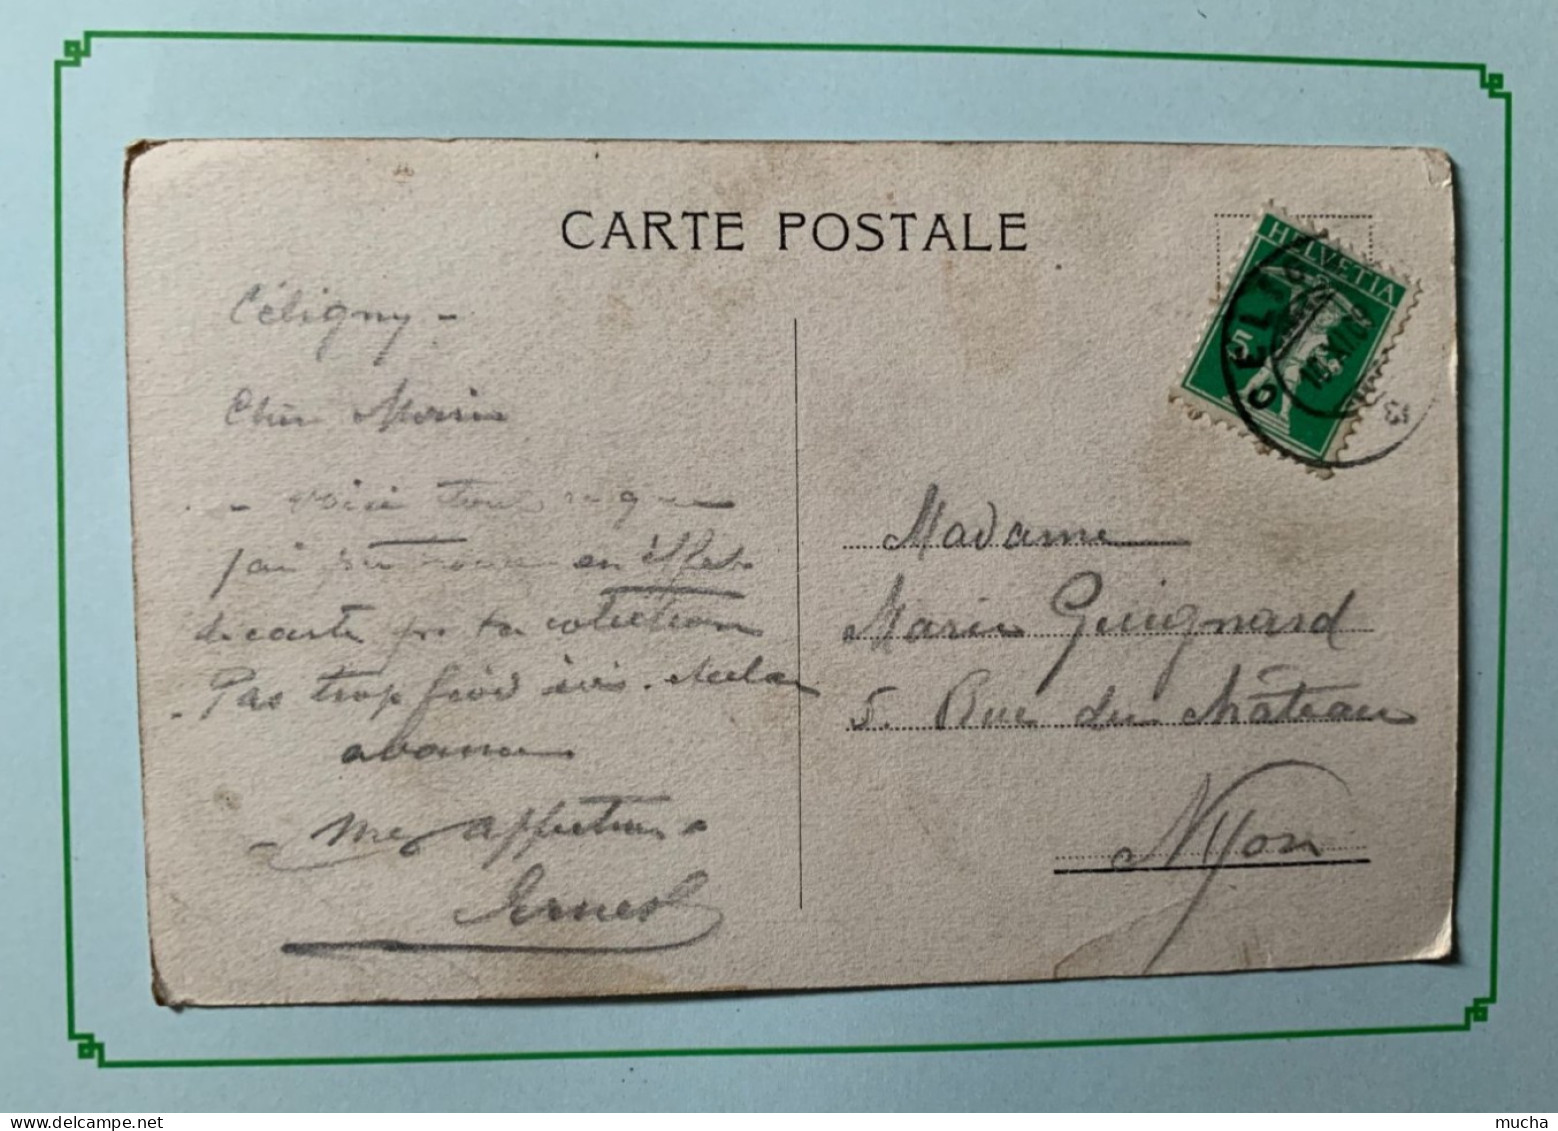 CARTE POSTALE
HELVETIA
5
CELIGNY
10.XI.09
Céligny -
Chère Marie
- voici tout ce que
j'ai pu trouver en effets
de carte pr ta collection
- Pas trop froid ici.
- Mes affections -
Ernest
Madame
Marie Guignard
5. Rue du Château
Nyon
delcampe.net
mucha